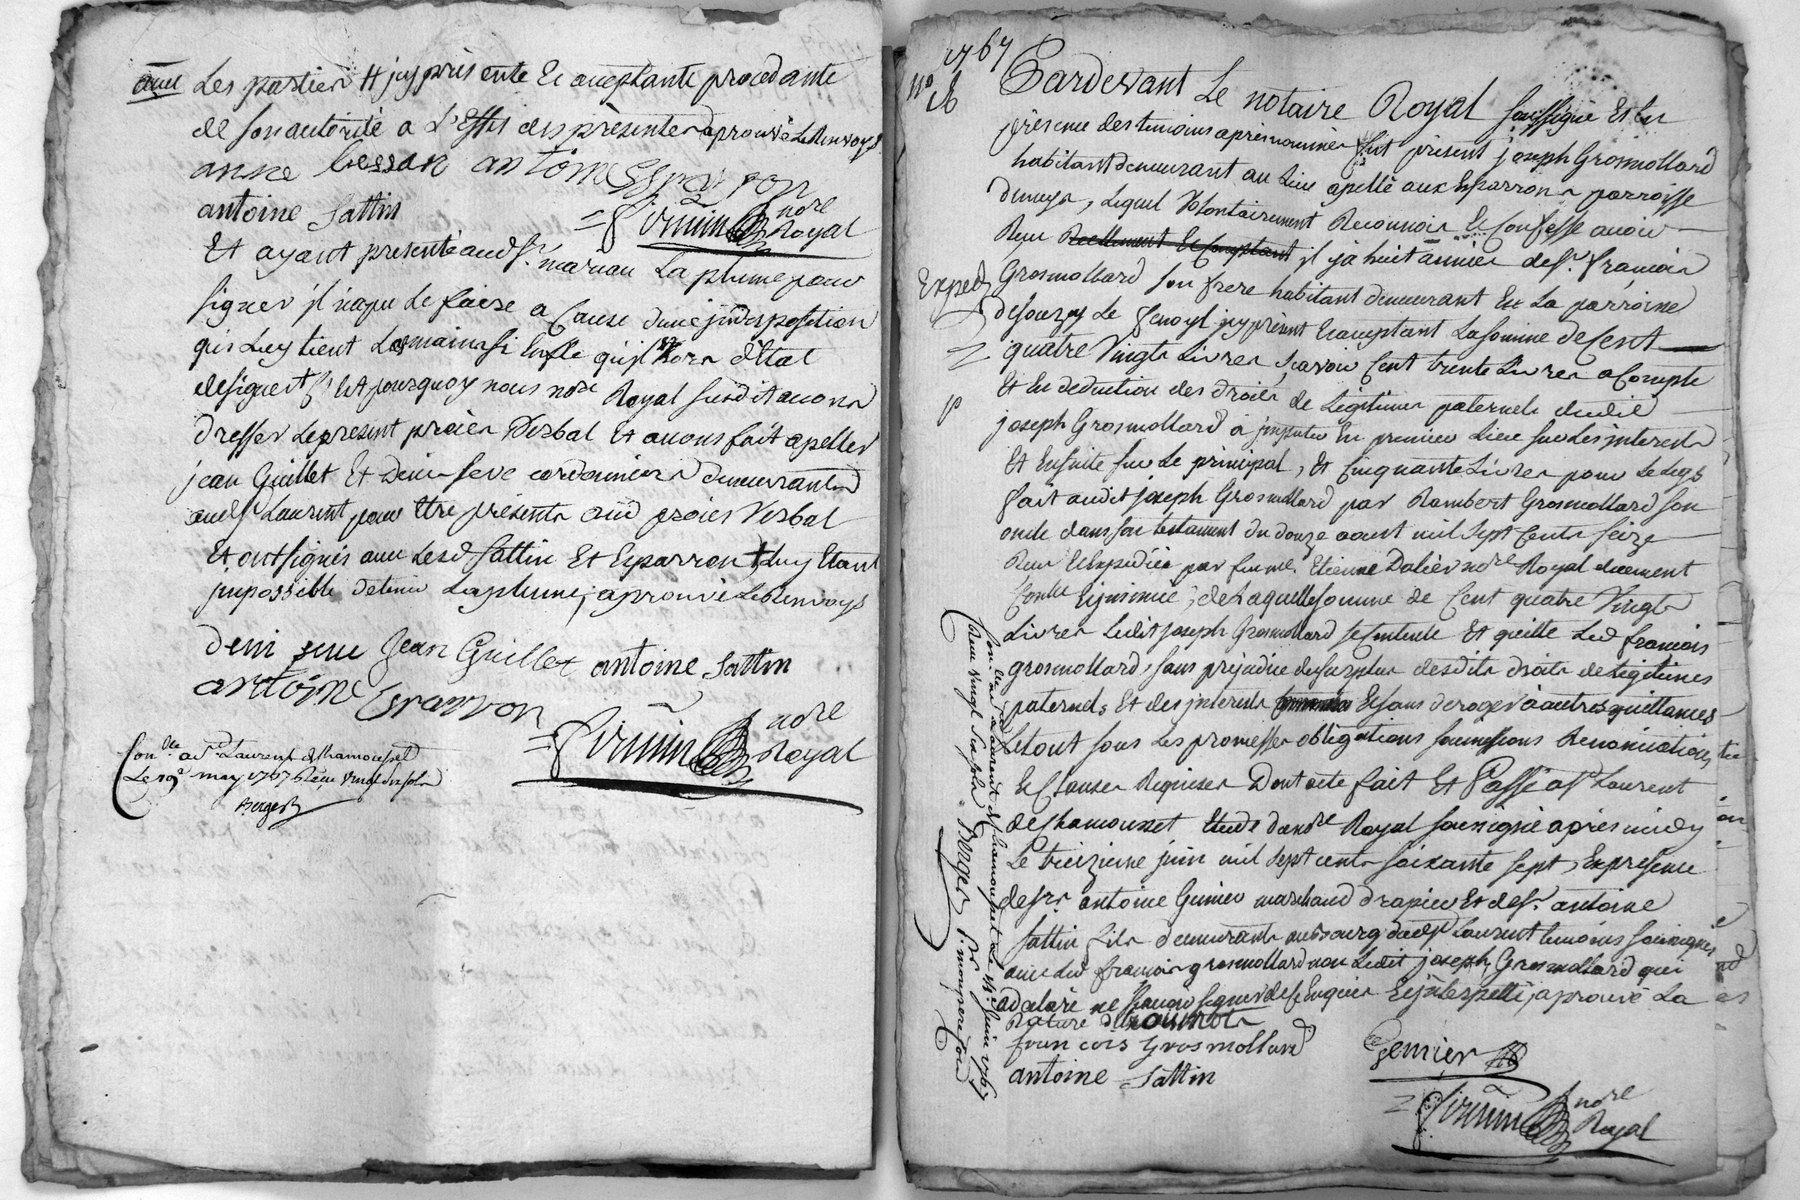 avec Les parties Et jcy présente Et acceptante procedante
de son autorité a L'effet des présentes aprouvé Le Renvoys
anne bessan antoine Esparron
antoine Sattin
Nore Royal
Et ayant presenté aud Sr. La plume pour
signer jl n'a pu Le faire a Cause d'une jndisposition
qui Luy tient La main si Enflé qu'jl Est hors d'Etat
de signer C'est pourquoy nous nore Royal susdit avons
Dressé Le présent procès Verbal Et avons fait apeller
jean Guillet Et Denis Seve cordonniers demeurants
aud St Laurent pour Etre présents aud procès Verbal
Et ont signés avec Lesd Sattin Et Esparron Luy Etant
jmpossible de tenir La plume, aprouvé Le Renvoys
Deni seve Jean Guillet antoine Sattin
antoine Esparron
nore Royal
Conlle. a St. Laurent de Chamousset
Le 19e may 1767
Berger
1767
No 16
Pardevant Le notaire Royal soussigné Et En
présence des temoins aprés nommés fut présent joseph Grosmollard
habitant demeurant au Lieu apellé aux Esparrons parroisse
Lequel Volontairement Reconnoit Et Confesse avoir
Reçu Réellement Et Comptant jl ja huit années de Sr. françois
Exped
Grosmollard son frere habitant demeurant En La parroisse
de Souzy Le jcy présent Et acceptant La somme de Cent
quatre Vingts Livres, sçavoir Cent trente Livres a Compte
Et En deduction des droits de Légitimes paternels dudit
joseph Grosmollard à jmputer En premier Lieu sur Les jnterests
Et Ensuite sur Le principal, Et Cinquante Livres pour Le Legs
fait audit joseph Grosmollard par Rambert Grosmollard son
oncle dans son testament du douze aoust mil sept Cents seize
Reçu Et Expédiée par feu me. Etienne nore Royal duement
Controllé Et jnsinué; de Laquelle somme de Cent quatre Vingts
Livres Ledit joseph Grosmollard se Contente Et quitte Led françois
grosmollard, sans préjudice du surplus desdits droits de Légitimes
paternels Et des jnterests Et sans deroger à autres quittances
Le tout sous Les promesses obligations soumissions Renonciations
Et Clauses Requises Dont acte fait Et Passé a St Laurent
de Chamousset Etude dud nore Royal soussigné aprés midy
Le treizieme juin mil sept cents soixante sept, En présence
de sr. antoine Genier marchand drapier Et de Sr. antoine
Sattin fils demeurants au bourg dud St Laurent temoins soussignés
avec Led françois grosmollard non Ledit joseph Grosmollard qui
a déclaré ne sçavoir signer de ce Enquis Et jnterpellé, aprouvé La
Rature
francois Grosmollard
Genier
antoine Sattin
nore Royal
Conlle. a St Laurent de Chamousset Le juin 1767
Reçu vingt six sols Berger